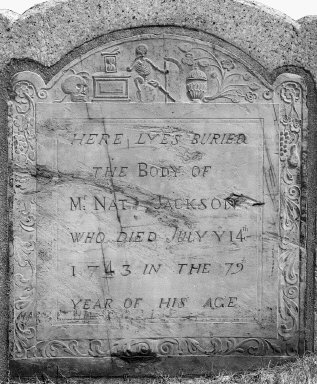 HERE LYES BURIED
THE BODY OF
Mr NATll JACKSON
WHO DIED JULY Ye 14th
1743 IN THE 79
YEAR OF HIS AGE